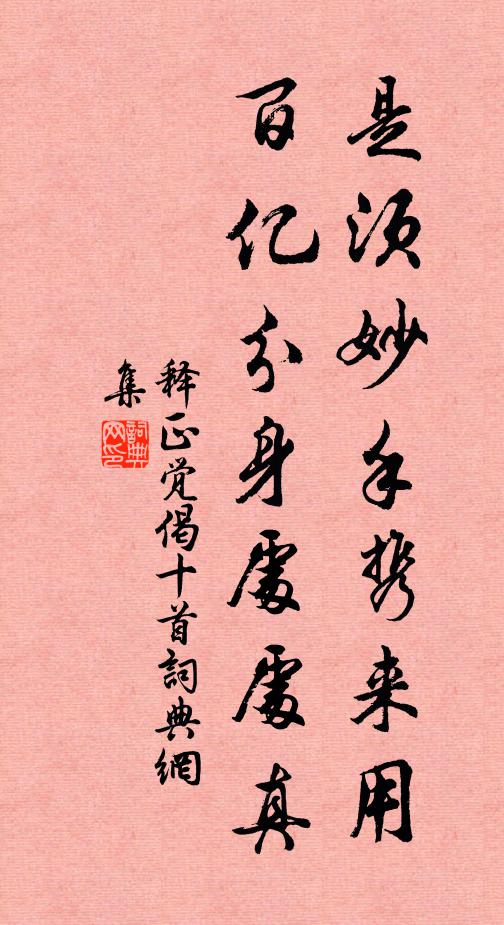 是须妙手携来用
百亿分身處處真
释正觉偈十首詞典網
集
詞典网印